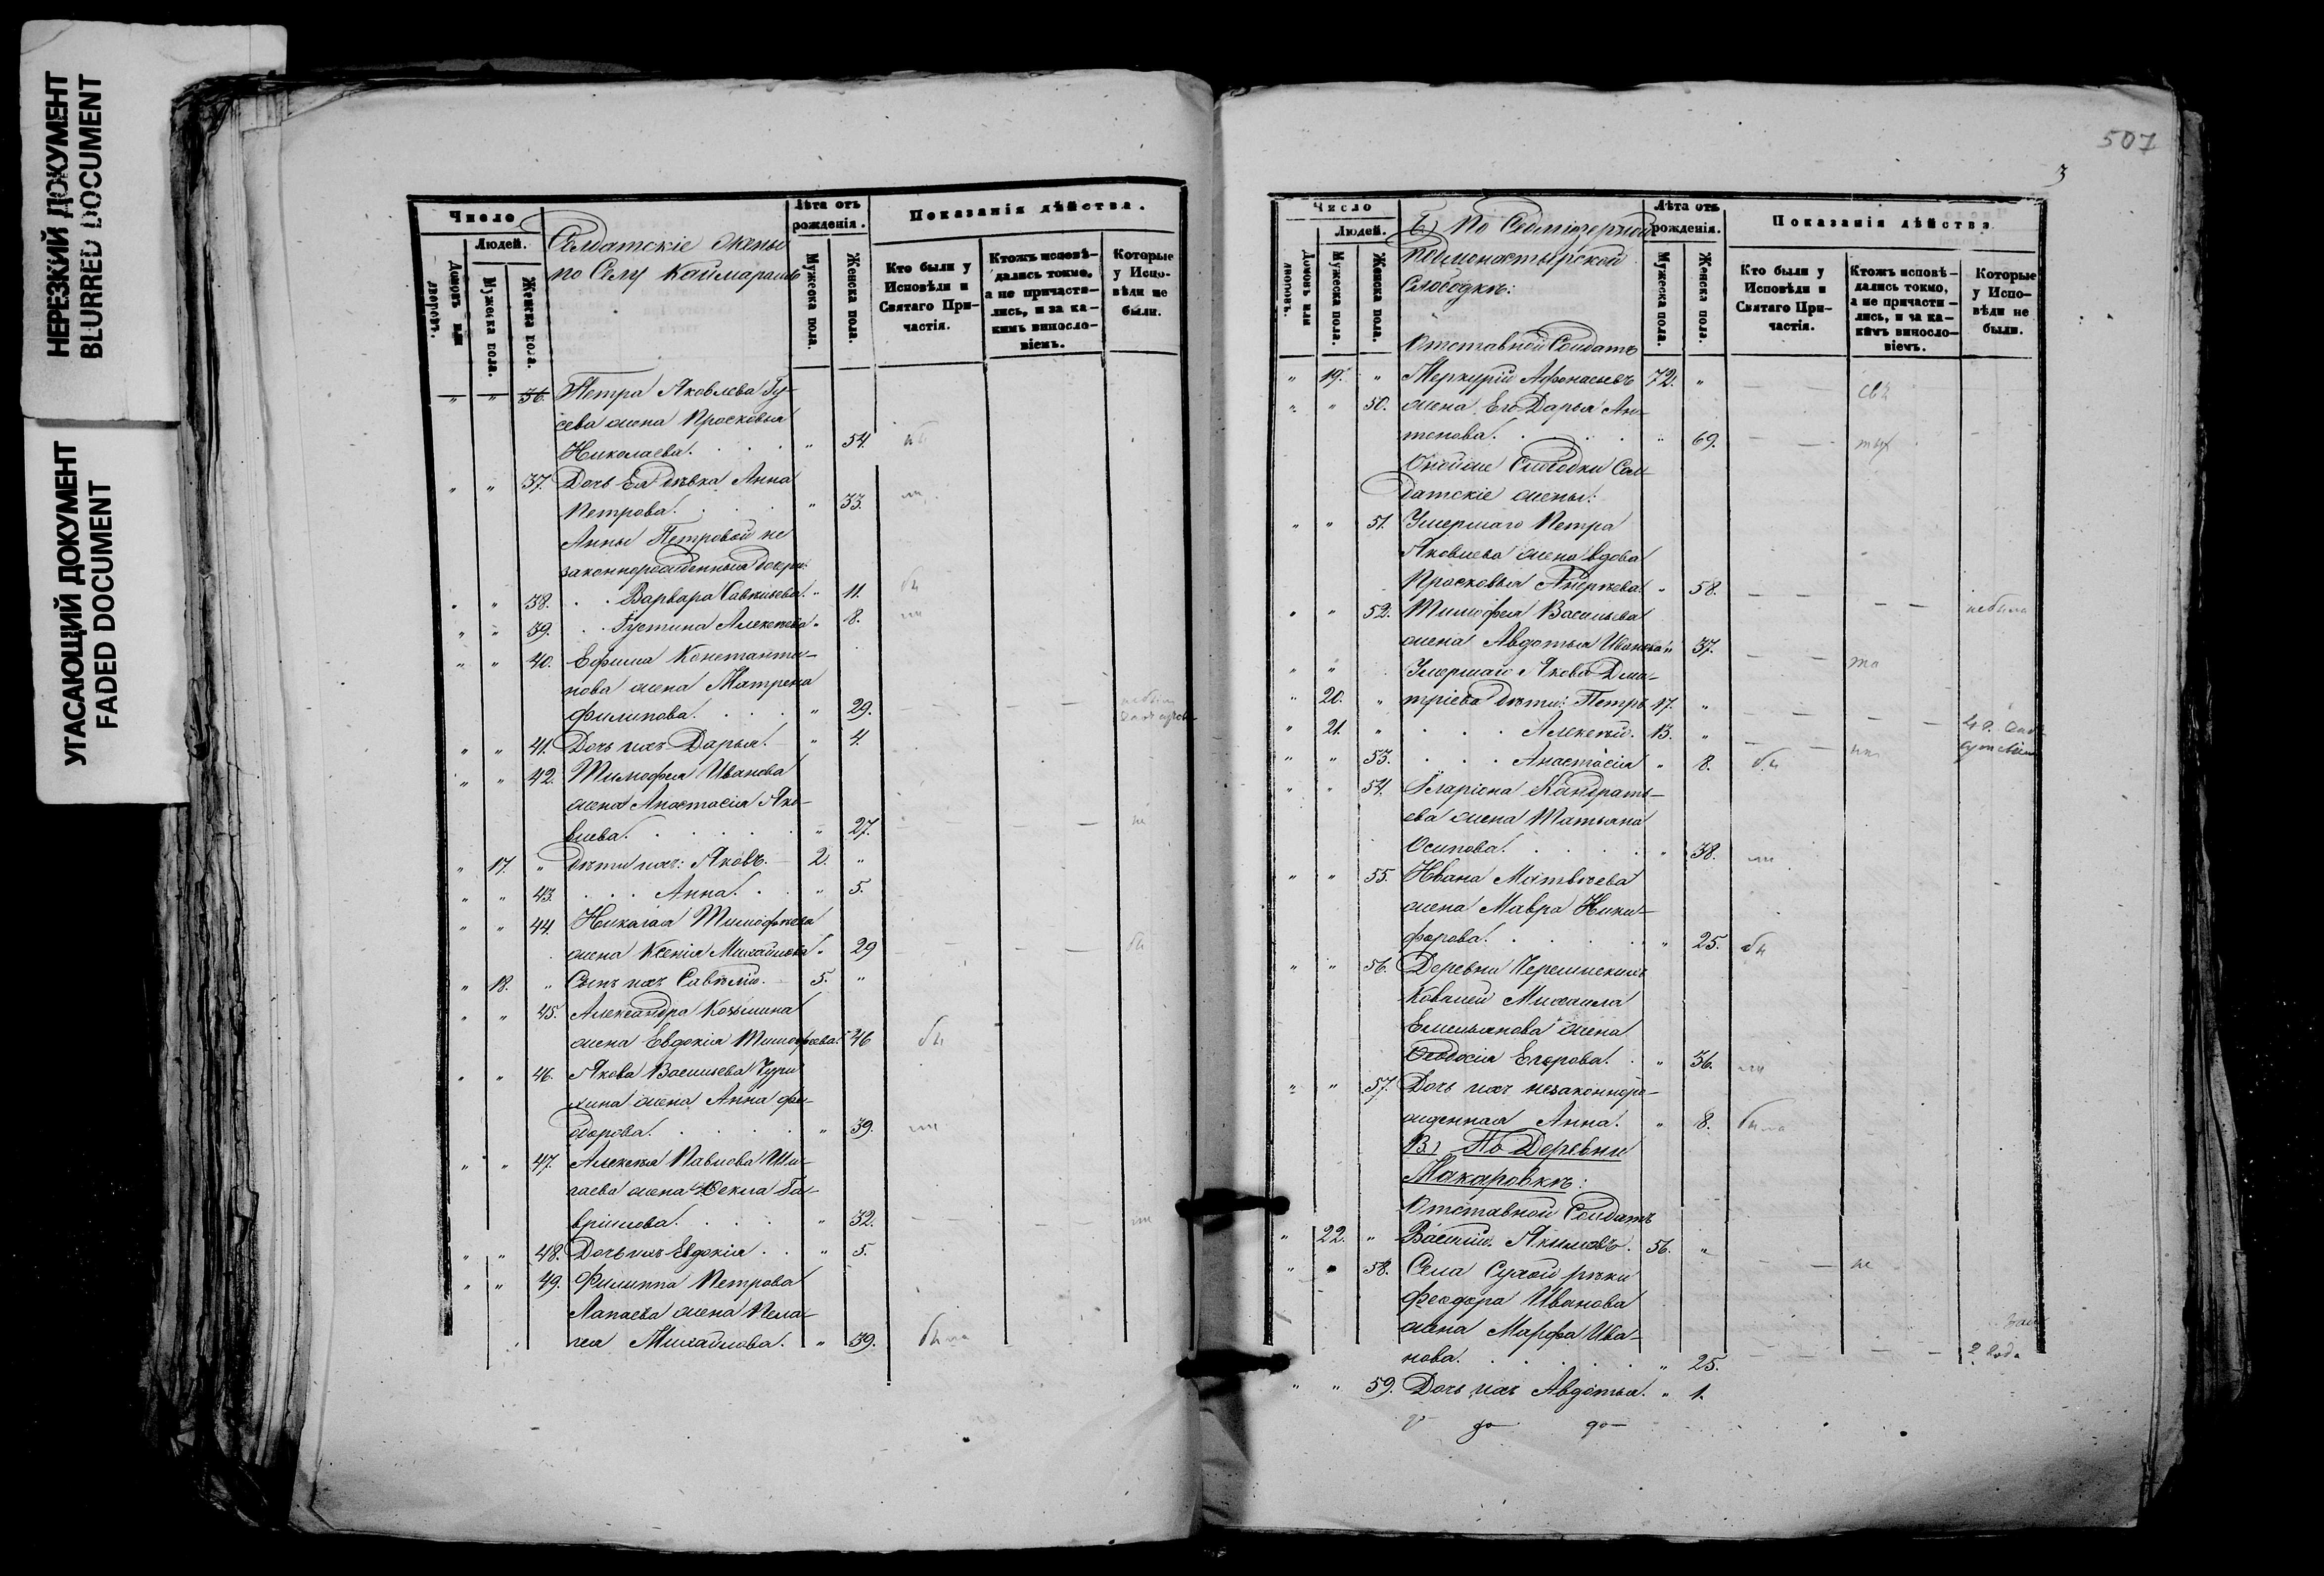 НЕРЕЗКИЙ ДОКУМЕНТ
BLURRED DOCUMENT
УГАСАЮЩИЙ ДОКУМЕНТ
FADED DOCUMENT
Число
Людей.
Домовъ или дворовъ.
Мужеска пола.
Женска пола.
Солдатскіе жены
по Селу Каймарамъ
Лѣта отъ рожденія.
Мужеска пола.
Женска пола.
Показанія дѣйства.
Кто были у Исповѣди и Святаго Причастія.
Ктожъ исповѣдались токмо, а не причастились, и за какимъ винословіемъ.
Которые у Исповѣди не были.
" " 36. Петра Яковлева Гу-
сева жена Просковья
Николаева. " 54.
" " 37. Дочь Ея дѣвка Анна
Петрова. " 33.
Анны Петровой не
законнорожденныя дочери:
" " 38. Варвара Савельева. " 11.
" " 39. Густина Алексѣева " 8.
" " 40. Ефима Константи-
нова жена Матрена
Филипова. " 29.
" " 41. Дочь ихъ Дарья. " 4.
" " 42. Тимофея Иванова
жена Анастасія Яко-
влева. " 27.
" 17. " Дѣти ихъ: Яковъ. 2. "
" " 43. Анна. " 5.
" " 44. Николая Тимофѣева
жена Ксенія Михайлова " 29
" 18. " Сынъ ихъ Савѣлій. 5. "
" " 45. Александра Козьмина
жена Евдокія Тимофѣева. 46
" " 46. Якова Васильева Чури
хина жена Анна Фе-
дорова. " 39.
" " 47. Алексѣя Павлова Ши-
гаева жена Фекла Га-
врилова. " 32.
" " 48. Дочь ихъ Евдокія. " 5.
" " 49. Филиппа Петрова
Лапаева жена Пела-
гея Михайлова. " 39. была
507
3
Число
Людей.
Домовъ или дворовъ.
Мужеска пола.
Женска пола.
Б) По Седміезерной
Подмонастырской
Слободкѣ:
Лѣта отъ рожденія.
Мужеска пола.
Женска пола.
Показанія дѣйства
Кто были у Исповѣди и Святаго Причастія.
Ктожъ исповѣдались токмо, а не причастились, и за какимъ винословіемъ.
Которые у Исповѣди не были.
Отставной Солдатъ
" 19. " Меркурій Афонасьевъ 72. "
" " 50. жена Его Дарья Ан-
тонова. " 69.
Оной же Слободки Сол-
датскіе жены:
" " 51. Умершаго Петра
Яковлева жена вдова
Просковья Андреева. " 58.
" " 52. Тимофея Васильева небыла
жена Авдотья Иванова " 37.
" " Умершаго Якова Дми-
" 20. " тріева дѣти: Петръ 17. "
" 21. " Алексѣй. 13. "
" " 53. Анастасія " 8.
" " 54. Иларіона Кандрать-
ева жена Татьяна
Осипова. " 38.
" " 55. Ивана Матвѣева
жена Мавра Ники-
форова. " 25.
" " 56. Деревни Черемшскихъ
Ковалей Михаила
Емельянова жена
Феодосія Егорова. " 36.
" " 57. Дочь ихъ незаконноро-
жденная Анна. " 8. была
В) По Деревни
Макаровкѣ:
Отставной Солдатъ
" 22. " Василій Якимовъ. 56. "
" " 58. Села Сухой рѣки
Феодора Иванова
жена Марфа Ива-
нова. " 25. 2 года
" " 59. Дочь ихъ Авдотья. " 1.